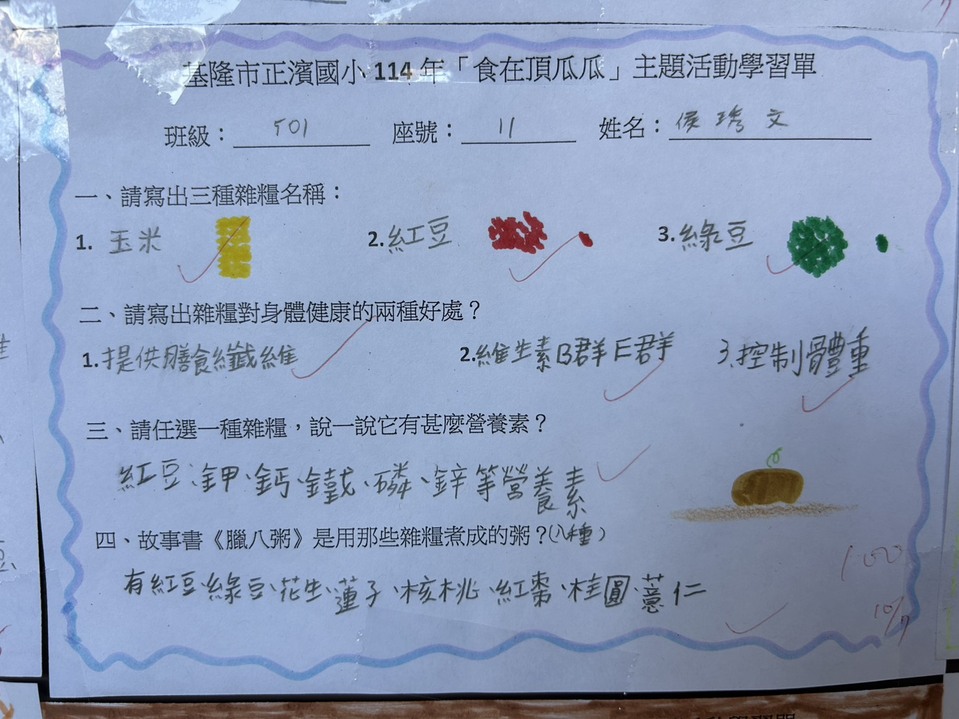 基隆市正濱國小 114 年「食在頂瓜瓜」主題活動學習單
班級： 501 座號： 11 姓名：侯琇文
一、請寫出三種雜糧名稱：
1. 玉米 2. 紅豆 3. 綠豆
二、請寫出雜糧對身體健康的兩種好處？
1. 提供膳食纖維 2. 維生素B群E群 3.控制體重
三、請任選一種雜糧，說一說它有甚麼營養素？
紅豆:鉀、鈣、鐵、磷、鋅等營養素
四、故事書《臘八粥》是用那些雜糧煮成的粥？(八種)
有紅豆、綠豆、花生、蓮子、核桃、紅棗、桂圓、薏仁
100
10/7